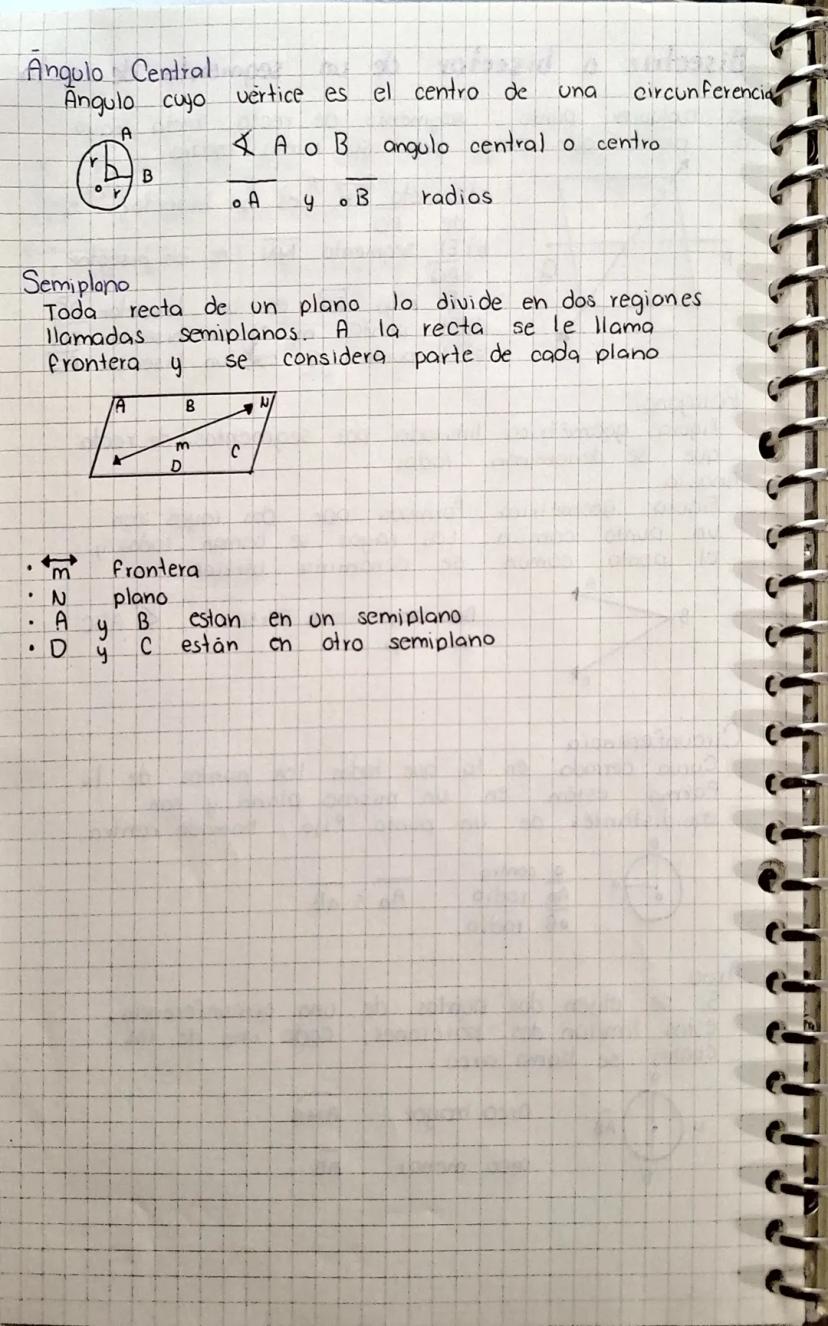 Ángulo Central
Ángulo cuyo vértice es el centro de una circunferencia
A
r
B
o r
∢ A o B angulo central o centro
oA y oB radios
Semiplano
Toda recta de un plano lo divide en dos regiones
llamadas semiplanos. A la recta se le llama
frontera y se considera parte de cada plano
A B N
m C
D
· m frontera
· N plano
· A y B estan en un semiplano
· D y C están en otro semiplano